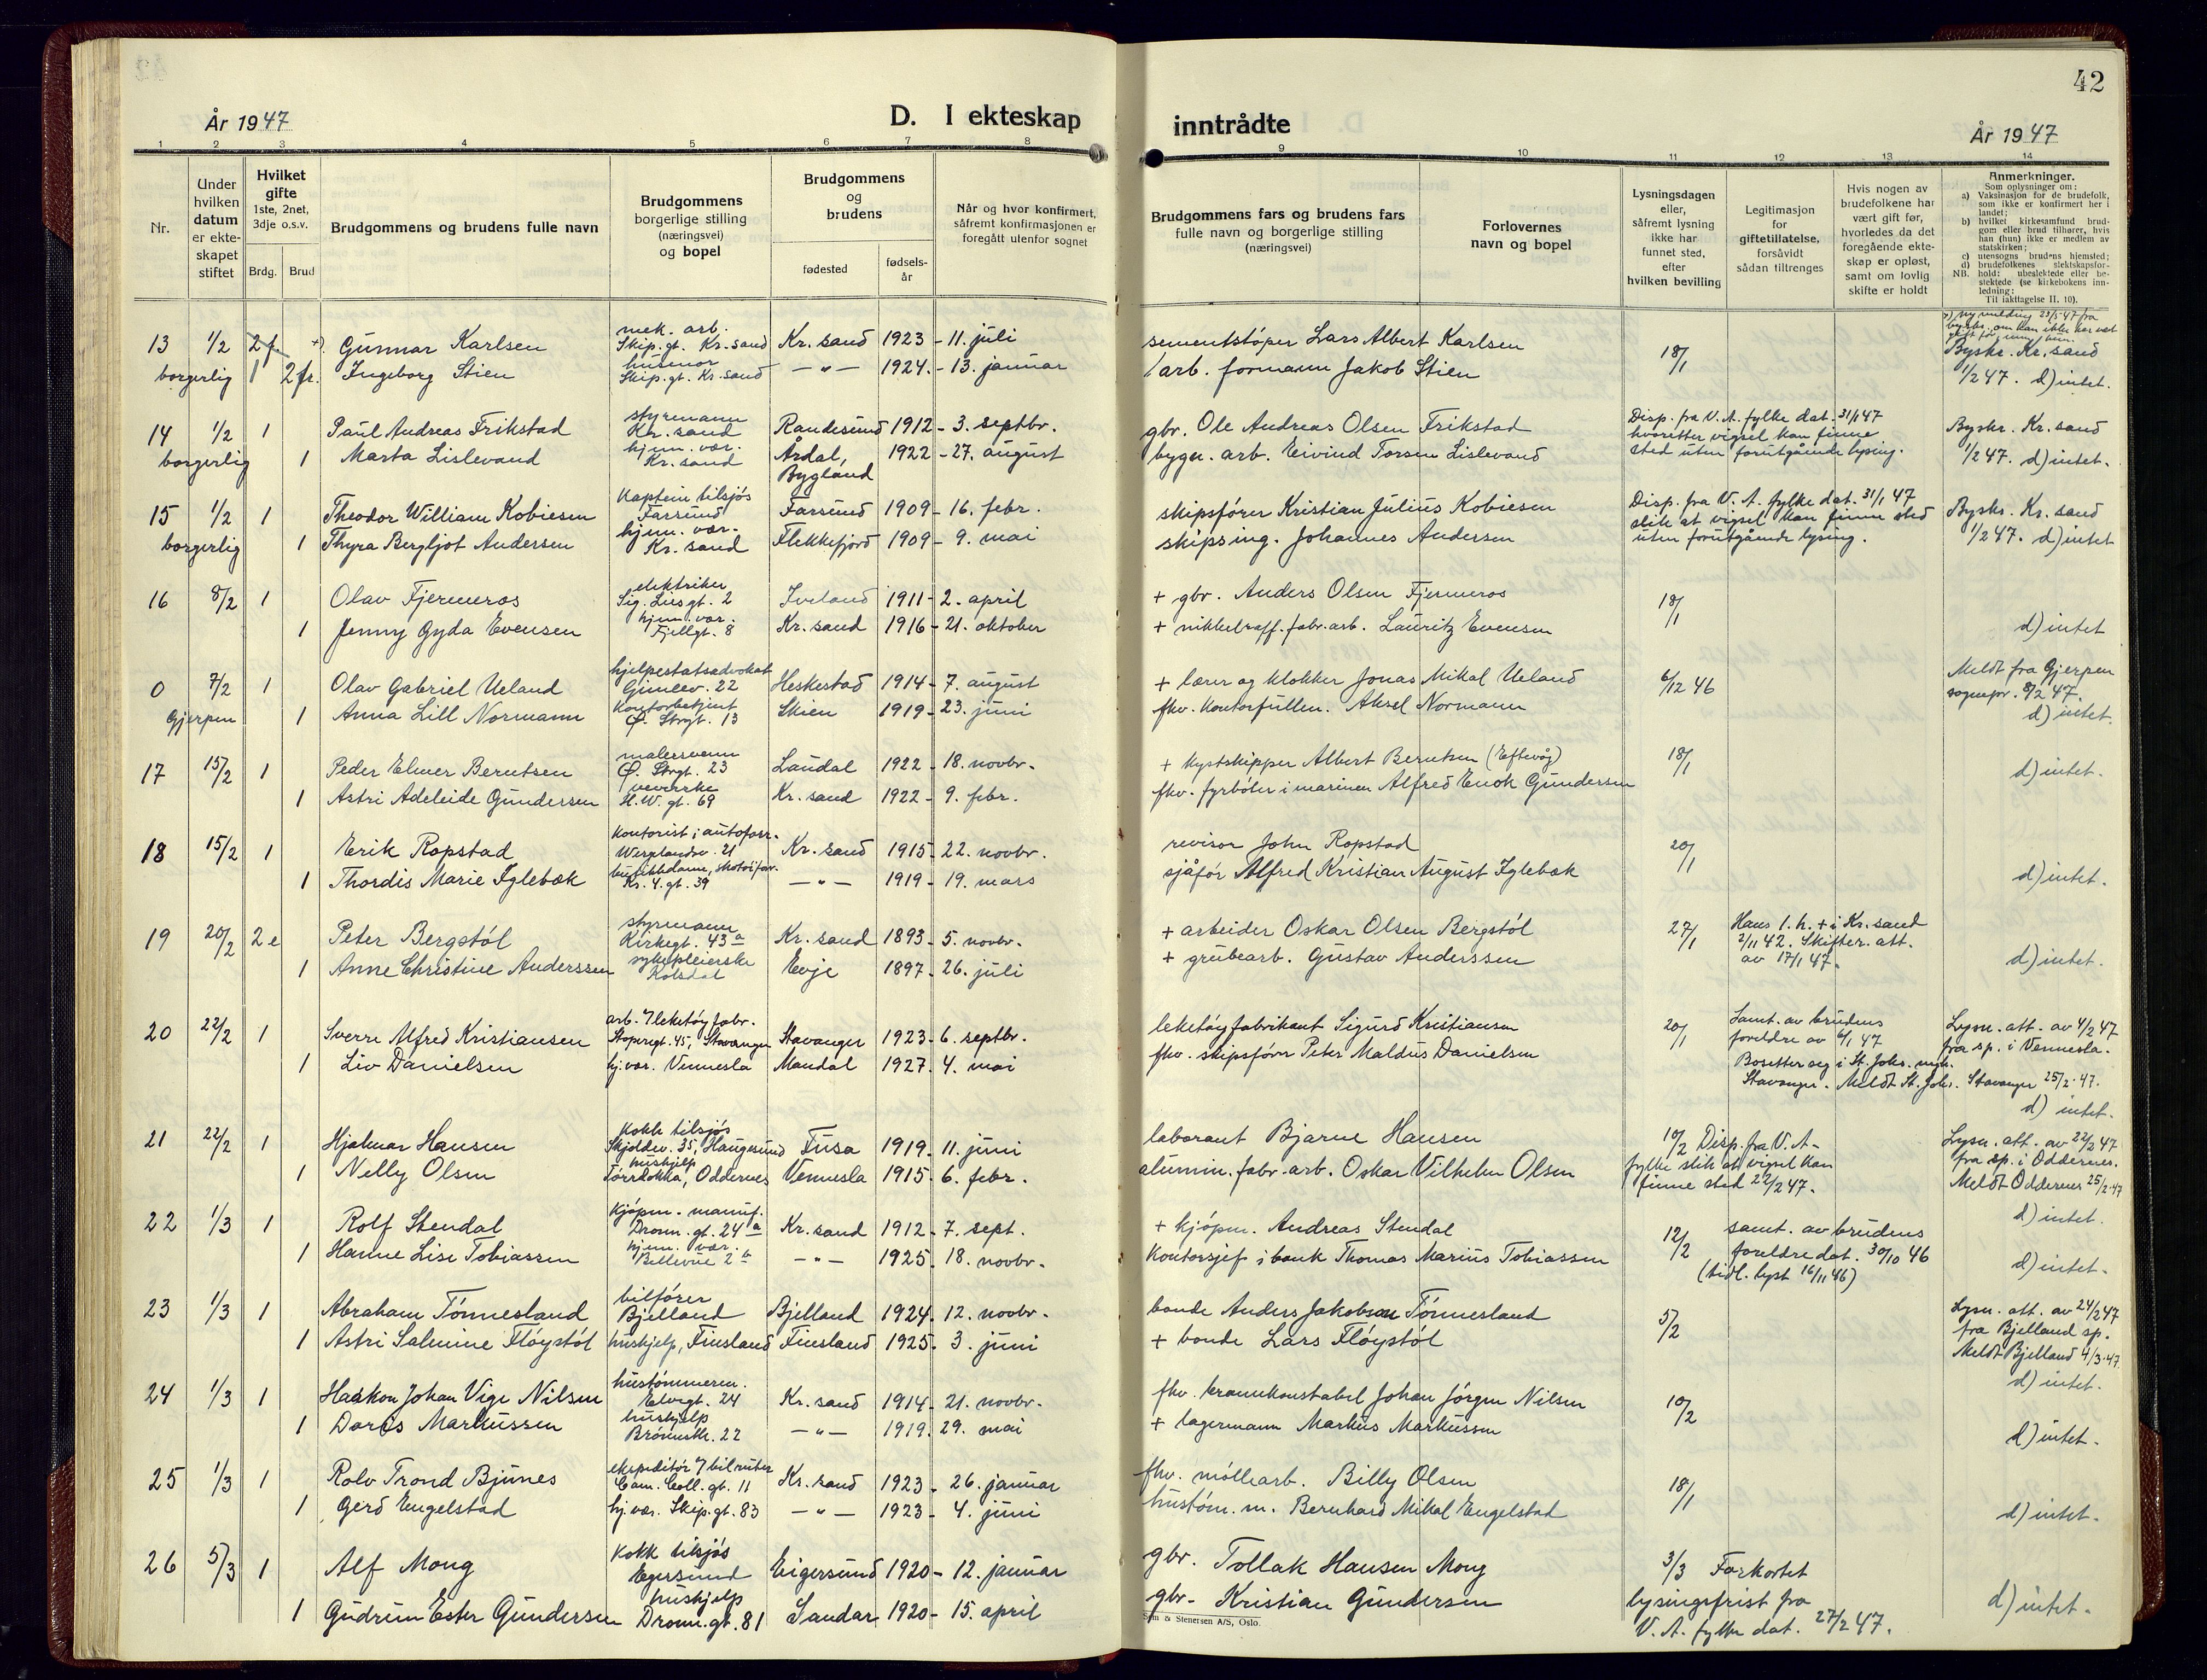 42
År 1947
D. I ekteskap inntrådte
År 1947
1 2 3 4 5 6 7 8 9 10 11 12 13 14
Nr.
Under hvilken datum er ekteskapet stiftet
Hvilket gifte 1ste, 2net, 3dje o.s.v.
Brdg. Brud
Brudgommens og brudens fulle navn
Brudgommens borgerlige stilling (næringsvei) og bopel
Brudgommens og brudens
fødested
fødselsår
Når og hvor konfirmert, såfremt konfirmasjonen er foregått utenfor sognet
Brudgommens fars og brudens fars fulle navn og borgerlige stilling (næringsvei)
Forlovernes navn og bopel
Lysningsdagen eller, såfremt lysning ikke har funnet sted, efter hvilken bevilling
Legitimasjon for giftetillatelse, forsåvidt sådan tiltrenges
Hvis nogen av brudefolkene har vært gift før, hvorledes da det foregående ekteskap er opløst, samt om lovlig skifte er holdt
Anmerkninger.
Som oplysninger om:
a) Vaksinasjon for de brudefolk, som ikke er konfirmert her i landet;
b) hvilket kirkesamfund brudgom eller brud tilhører, hvis han (hun) ikke er medlem av statskirken;
c) utensogns brudens hjemsted;
d) brudefolkenes slektskapsforhold: ubeslektede eller beslektede (se kirkebokens innledning:
NB. Til iakttagelse II. 10).
13 1/2 2f +) Gunnar Karlsen mek. arb. Skip.gt. Kr.sand Kr. sand 1923 - 11. juli sementstøper Lars Albert Karlsen 18/1 +) ny melding 23/5-47 fra byskr. om han ikke har vært gift før
borgerlig 1 2fr. Ingeborg Stien husmor Skip.gt. Kr.sand —"— 1924. - 13. januar arb. formann Jakob Stien Byskr. Kr.sand 1/2 47. d) intet.
14 1/2 1 Paul Andreas Frikstad styrmann Kr.sand Randesund 1912 - 3. septbr. gbr. Ole Andreas Olsen Frikstad Disp. fra V.A. fylke dat. 31/1 47 hvoretter vigsel kan finne sted uten forutgående lysing. Byskr. Kr.sand
borgerlig 1 Marta Lislevand hjem. vær. Kr.sand Årdal, Bygland 1922 - 27. august bygn. arb. Eivind Torsen Lislevand 1/2 47. d) intet.
15 1/2 1 Theodor William Kobiesen Kaptein tilsjøs Farsund Farsund 1909 - 16. febr. skipsfører Kristian Julius Kobiesen Disp. fra V.A. fylke dat. 31/1 47 slik at vigsel kan finne sted uten forutgående lysing. Byskr. Kr.sand
borgerlig 1 Thyra Bergljot Andersen hjem. vær. Kr.sand Flekkefjord 1909 - 9. mai skipsing. Johannes Andersen 1/2 47. d) intet
16 8/2 1 Olav Fjermeros elektriker Sig. Lus gt. 2 Iveland 1911 - 2. april + gbr. Anders Olsen Fjermeros 18/1
1 Jenny Gyda Evensen hjem. vær. Fjellgt. 8 Kr. sand 1916 - 21. oktober + nikkelraff. fabr. arb. Lauritz Evensen d) intet
0 7/2 1 Olav Gabriel Ueland hjelpestatsadvokat Gimlev. 22 Heskestad 1914 - 7. august + lærer og klokker Jonas Mikal Ueland 6/12 46 Meldt fra Gjerpen sognepr. 8/2 47.
Gjerpen 1 Anna Lill Normann Kontorbetjent Ø. Strgt. 13 Skien 1919 - 23. juni fhv. kontorfullm. Aksel Normann d) intet.
17 15/2 1 Peder Elmer Berntsen malersvenn Ø. Strgt. 23 Laudal 1922 - 18. novbr. + kystskipper Albert Berntsen (Eftevåg) 18/1
1 Astri Adeleide Gundersen veverske H.W. gt. 69 Kr. sand 1922 - 9. febr. fhv. fyrbøter i marinen Alfred Enok Gundersen d) intet.
18 15/2 1 Erik Ropstad Kontorist i autoforr. Werglandsv. 21 Kr. sand 1915 - 22. novbr. revisor John Ropstad 20/1
1 Thordis Marie Iglebæk butikkdame, skotøiforr. Kr. 4. gt. 39 —"— 1919 - 19. mars sjåfør Alfred Kristian August Iglebæk d) intet.
19 20/2 2e Peter Bergstøl styrmann Kirkegt. 43a Kr. sand 1893 - 5. novbr. + arbeider Oskar Olsen Bergstøl 27/1 Hans 1. h. + i Kr.sand 2/11 42. Skifter. att. av 17/1 47.
1 Anne Christine Anderssen sykepleierske Kolsdal Evje 1897 - 26. juli + grubearb. Gustav Anderssen d) intet.
20 22/2 1 Sverre Alfred Kristiansen arb. v/ leketøyfabr. Støperigt. 45, Stavanger Stavanger 1923 - 6. septbr. leketøyfabrikant Sigurd Kristiansen 20/1 Samt. av brudens foreldre av 6/1 47 Lysn. att. av 4/2 47 fra sp. i Vennesla.
1 Liv Danielsen hj. vær. Vennesla Mandal 1927. 4. mai fhv. skipsfører Peter Maldus Danielsen Bosetter seg i St. Johs. mgh. Stavanger. Meldt St. Johs. Stavanger 25/2-47. d) intet.
21 22/2 1 Hjalmar Hansen Kokk tilsjøs Skjoldav. 35, Haugesund Fusa 1919. 11. juni laborant Bjarne Hansen 10/2 Disp. fra V.A. fylke slik at vigsel kan finne sted 22/2 47. Lysn. att. av 22/2 47 fra sp. i Oddernes.
1 Nelly Olsen hushjelp Torridokka, Oddernes Vennesla 1915. 6. febr. alumin. fabr. arb. Oskar Vilhelm Olsen Meldt Oddernes 25/2-47 d) intet.
22 1/3 1 Rolf Stendal kjøpm. - manuf. Dronn. gt. 24a Kr. sand 1912 - 7. sept. + kjøpm. Andreas Stendal 12/2 samt. av brudens foreldre dat. 30/10 46
1 Hanne Lise Tobiassen hjem. vær. Bellevue 2b —"— 1925. 18. novbr. Kontorsjef i bank Thomas Marius Tobiassen (tidl. lyst 16/11 46) d) intet.
23 1/3 1 Abraham Tønnesland bilfører Bjelland Bjelland 1924. 12. novbr. bonde Anders Jakobsen Tønnesland 5/2 Lysn. att. av 24/2 47 fra Bjelland sp.
1 Astri Salmine Fløystøl hushjelp, Finsland Finsland 1925. 3. juni + bonde Lars Fløystøl Meldt Bjelland 4/3-47. d) intet.
24 1/3 1 Haakon Johan Vige Nilsen hustømmerm. Elvegt. 24 Kr. sand 1914 - 21. novbr. fhv. krannkonstabel Johan Jørgen Nilsen 10/2
1 Doris Markussen hushjelp 22 —"— 1919. 29. mai + lagermann Markus Markussen d) intet.
25 1/3 1 Rolv Trond Bjunes ekspeditør v/ bilruter Cam. Coll. gt. 11 Kr. sand 1923 - 26. januar fhv. møllearb. Billy Olsen 18/1
1 Gerd Engelstad hj. vær. Skip.gt. 83 —"— 1923 - 4. juni hustøm. m. Bernhard Mikal Engelstad d) intet.
26 5/3 1 Alf Mong Kokk tilsjøs Egersund Eigersund 1920 - 12. januar gbr. Tollak Hansen Mong 3/3 Forkortet lysingsfrist fra V.A. fylke dat. 27/2 47.
1 Gudrun Ester Gundersen hushjelp Dronn. gt. 81 Sandar 1920 - 15. april gbr. Kristian Gundersen d) intet.
Sem & Stenersen A/S, Oslo.